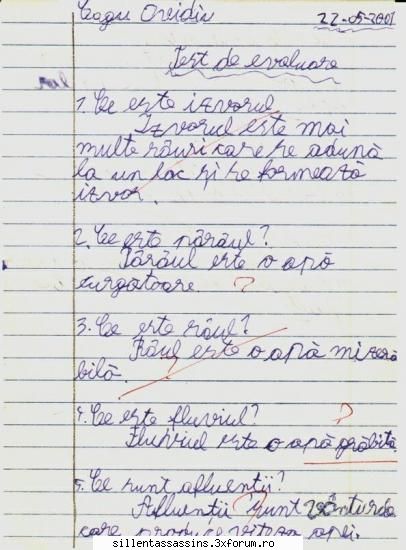 Cozgu Ovidiu 22-05-2001
Test de evaluare
1. Ce este izvorul
Izvorul este mai
multe râuri care se adună
la un loc și se formează
izvor.
2. Ce este pârâul?
Pârâul este o apă
curgatoare. ?
3. Ce este râul?
Râul este o apă mizera
bilă. ?
4. Ce este fluviul? ?
Fluviul este o apă grăbită.
5. Ce sunt afluenții?
Afluenții ? sunt
care produc viteza apei.
sillentassassins.3xforum.ro